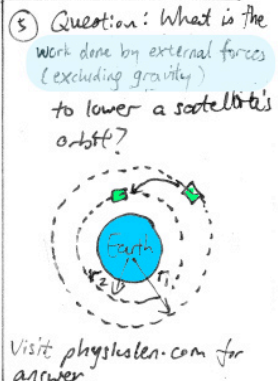 ⑤ Question: What is the
work done by external forces
(excluding gravity)
to lower a satellite's
orbit?
Earth
r2
r1
Visit physicslen.com for
answer